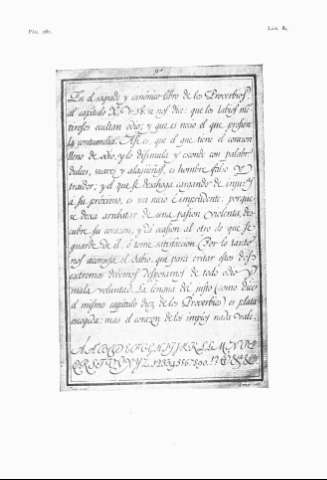 En el sagrado y canónico libro de los Proverbios,
al capitulo X. V. 18. se nos dice: que los labios men
tirosos ocultan odio; y que es necio el que profiere
la contumelia. Asi es, que el que tiene el corazon
lleno de odio, y lo disimula y esconde con palabras
dulces, suaves y alagüeñas, es hombre falso y
traidor; y el que se desahoga cargando de injurias
a su próximo, es un necio é imprudente; porque
se dexa arrebatar de una pasion violenta, des
cubre su corazon, y da ocasion al otro de que se
guarde de él, ó tome satisfaccion. Por lo tanto
nos aconseja el Sabio, que para evitar estos dos
extremos debemos despojarnos de todo odio y
mala voluntad. La lengua del justo (como dice
el mismo capitulo diez de los Proverbios) es plata
escogida: mas el corazon de los impíos nada vale.